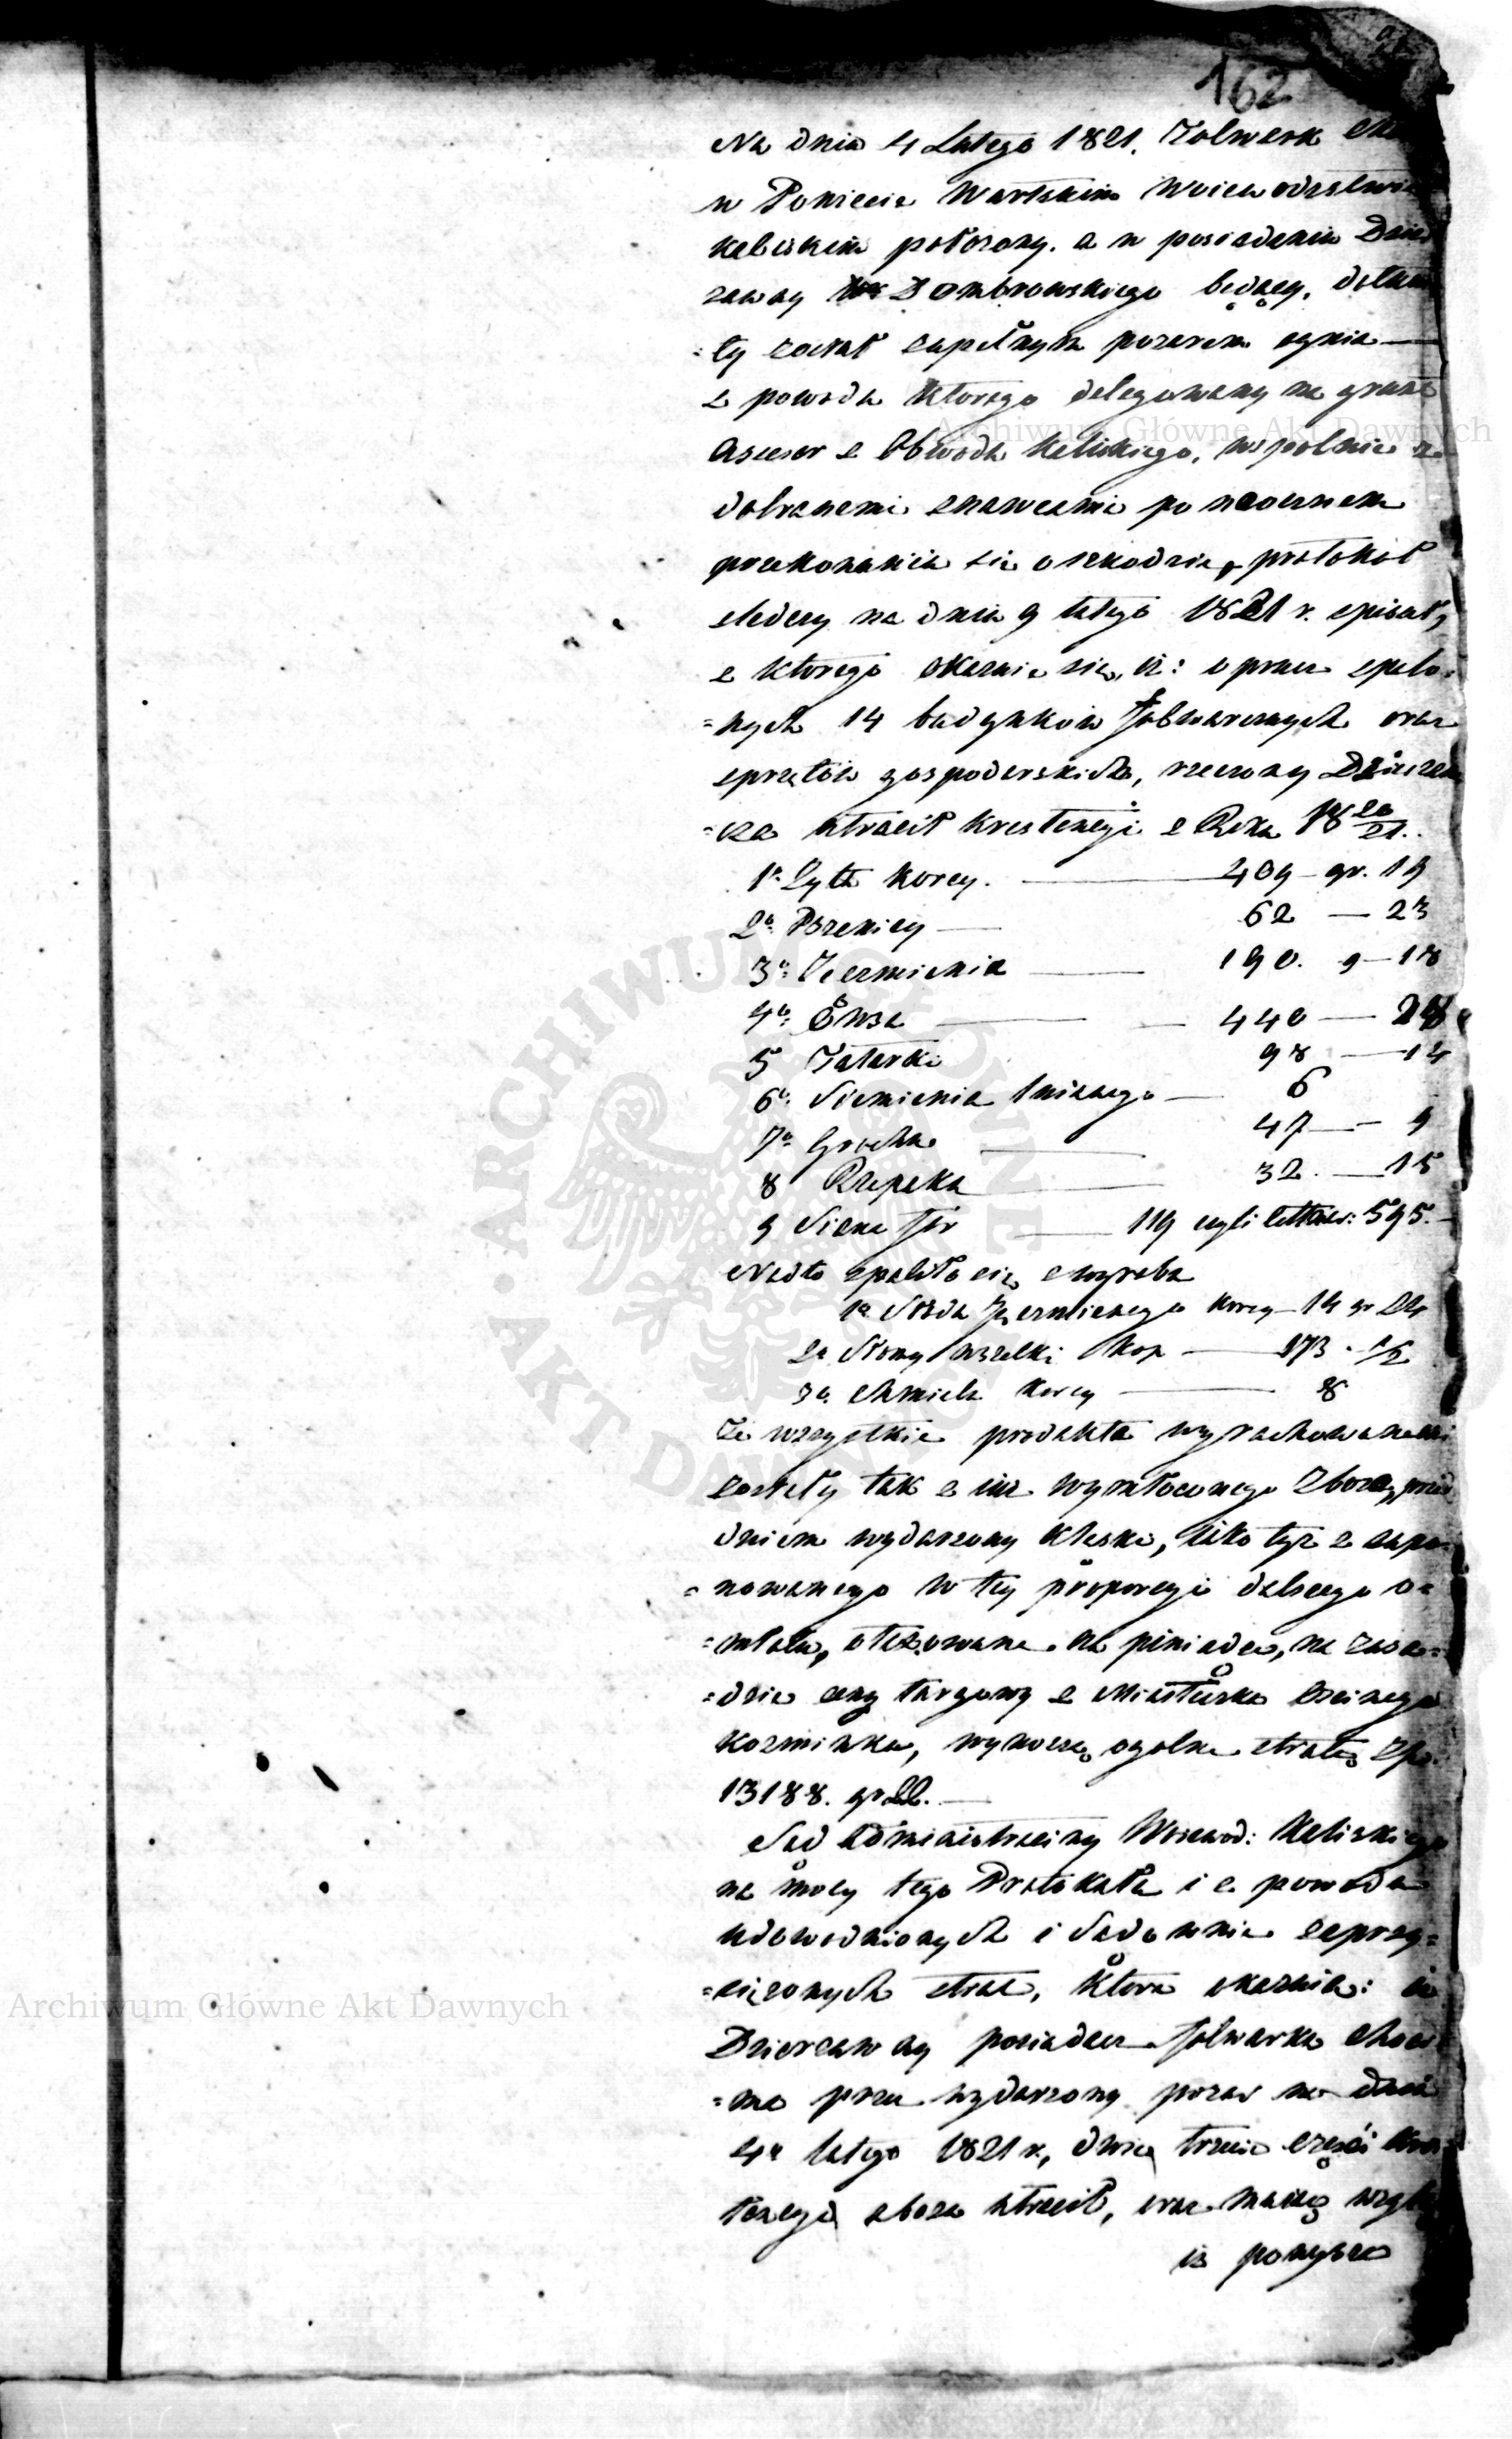 162
Na dniu 4 Lutego 1821. Folwark
w Powiecie Wartskim Woiewodztwie
Kaliskim położony, a w posiadaniu Dzier
zawcy Dombrowskiego będący, dotknię
=ty został zupełnym pozarem ognia —
z powodu ktorego delegowany na grunt
Assessor z Obwodu Kaliskiego, wspolnie z
dobranemi znawcami po naocznem
przekonaniu się o szkodzie, protokoł
sledczy na dniu 9 lutego 1821 r. spisał,
z ktorego okazuie się, iż: oprucz spalo=
=nych 14 budynków folwarcznych oraz
sprzętów gospodarskich, rzeczony Dzierza
=wca utracił krestencyi z Roku 18 20/21.
1o Zyta korcy. — 409 — gr. 19
2o Pszenicy — 62 — 23
3o Jęczmienia — 190. g — 18
4o Owsa — 440 — 28
5 Tatarki 98 — 14
6o Siemienia lnianego — 6
7o Grochu — 47 — 9
8 Rzepaku — 32. — 15
9 Siana for — 119 czyli cetnar: 595. —
Nadto spaliło się z wyrobu
1o Słodu Jęczmiennego korcy — 14 gr 24
2o Słomy wszelki kop — 173 . 1/2
3o Chmielu korcy — 8
Te wszystkie produkta wyrachowanemi
zostały tak z iuż wymłoconego Zboza, przed
dniem wydarzony klęski, iako tyż z
=nowanego w tey proporcyi dalszego o=
=młotu, otaxowane na piniądze, na zasa=
=dzie ceny targowy z Miasteczka
Kozminka, wynoszą ogolne stratę Złp.
13188. gr 22. —
Sąd Administracyiny Woiewod: Kaliskiego
na mocy tego Protokułu i z powodu
udowodnionych i Sądownie zaprzy=
=siężonych strat, ktore okazuią: iż
Dzierzawcy posiadacz folwarku Choci
=ma przez wydarzony pozar na dniu
4o lutego 1821 r., dwie trzecie części kres
tencyi zboza utracił, oraz maiąc wzgląd
iż powyzsza